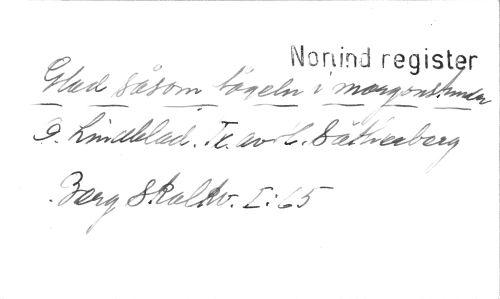 Norlind register
Glad såsom fågeln i morgonstunden
O. Lindblad. Tx. av H. Sätherberg
Berg Skolkv. I:65